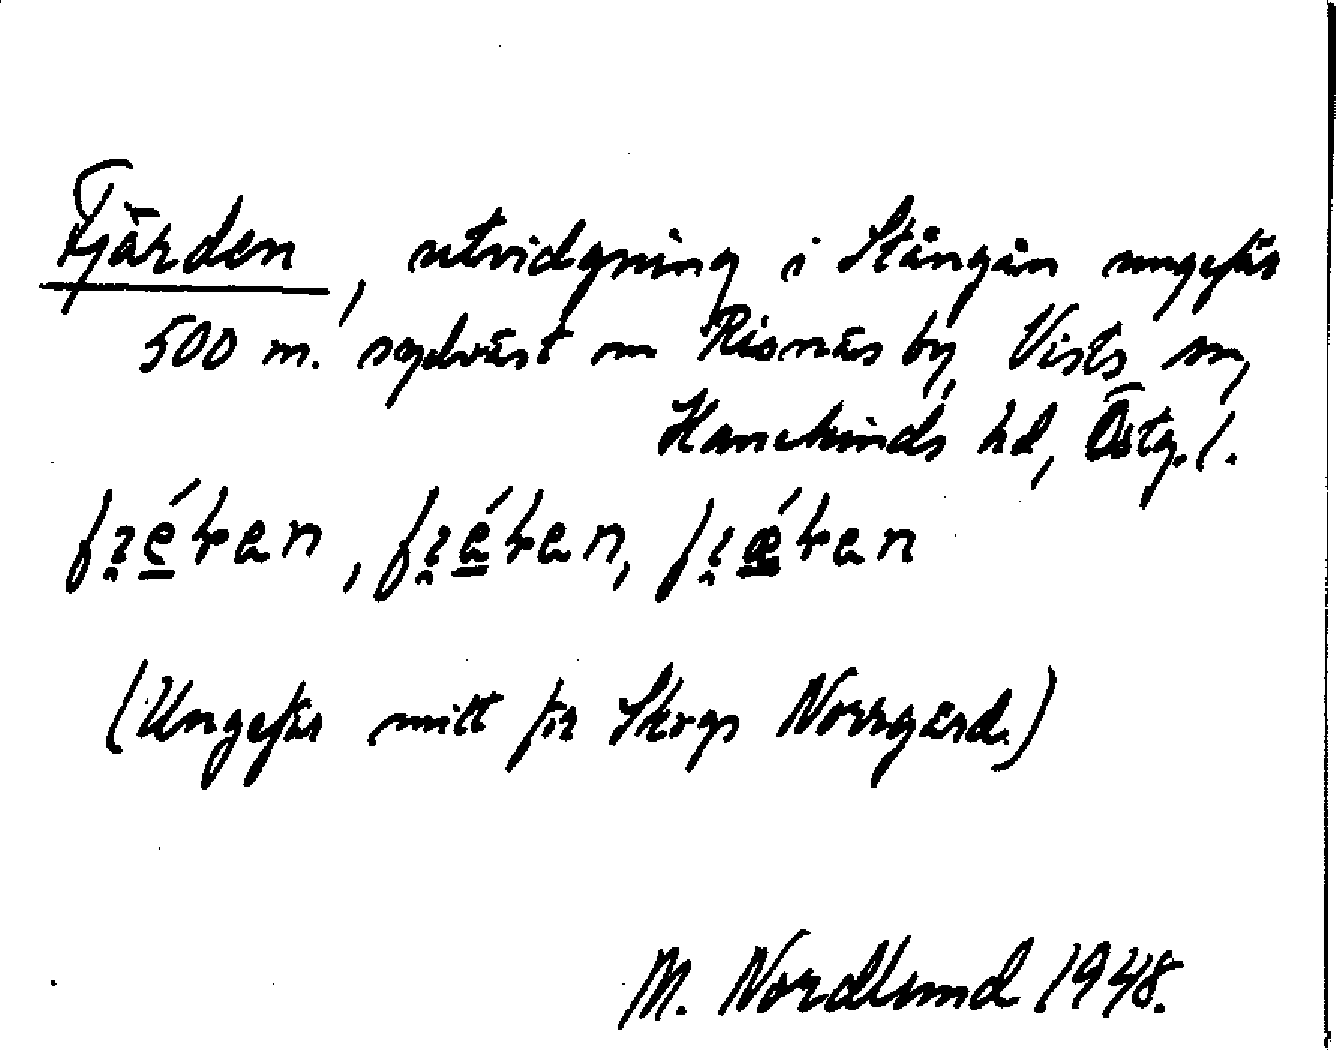 Fjärden, utvidgning i Stångån ungefär
500 m. sydväst om Risnäs by, Vists sn,
Hanekinds hd, Östg. l.
(Ungefär mitt för Skogs Norrgård.)
M. Nordlund 1948.